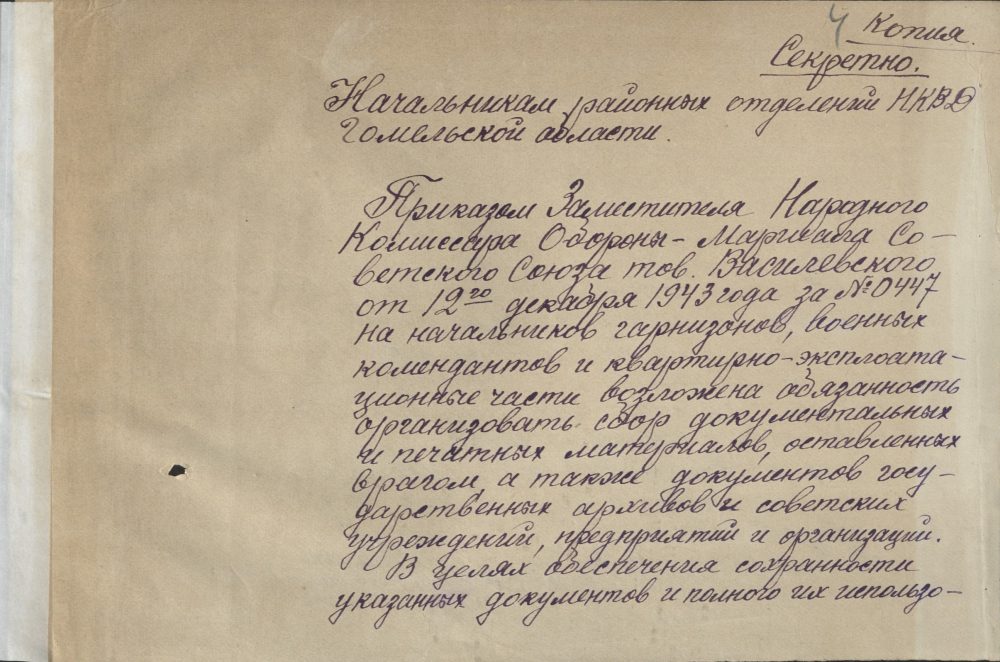 4
Копия.
Секретно.
Начальникам районных отделений НКВД
Гомельской области.
Приказом Заместителя Народного
Комиссара Обороны – Маршала Со–
ветского Союза тов. Василевского
от 12го декабря 1943 года за № 0447
на начальников гарнизонов, военных
комендантов и квартирно–эксплоата–
ционные части возложена обязанность
организовать сбор документальных
и печатных материалов, оставленных
врагом, а также документов госу–
дарственных архивов и советских
учреждений, предприятий и организаций.
В целях обеспечения сохранности
указанных документов и полного их использо–